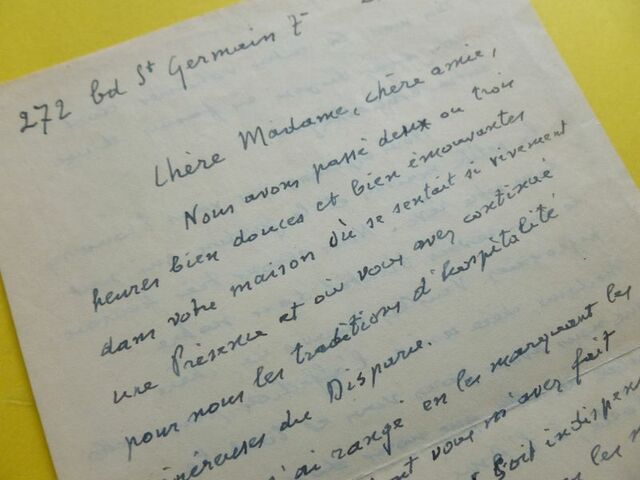 272 bd St Germain 7
Chère Madame, chère amie,
Nous avons passé deux ou trois
heures bien douces et bien émouvantes
dans votre maison où se sentait si vivement
une Présence et où vous avez continué
pour nous les traditions d'hospitalité
du Disparu.
rangé en les marquant les
vous m'avez fait
soit
les